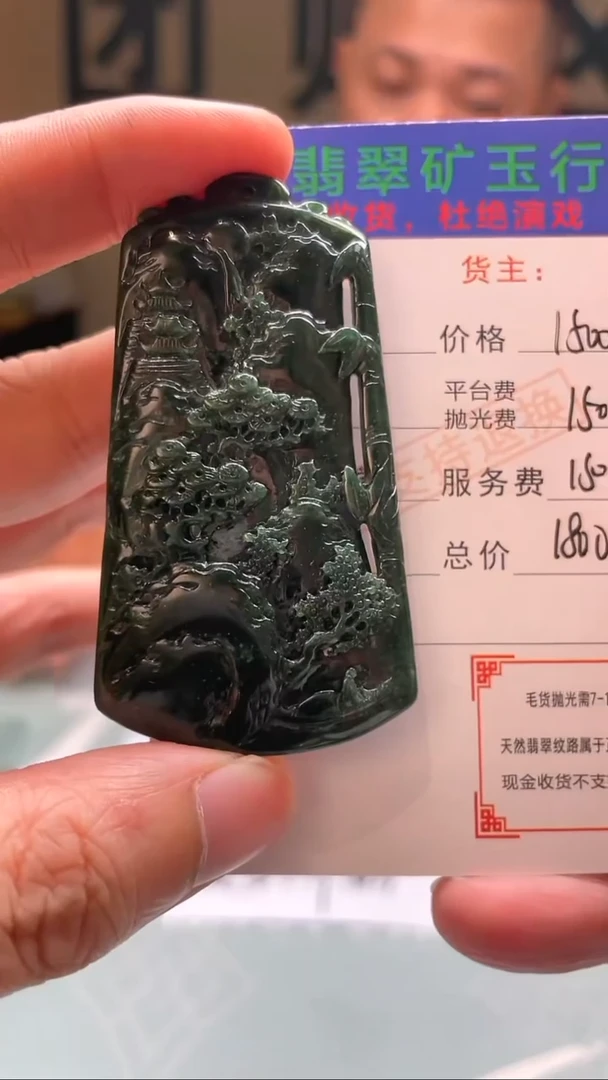 团
翡翠矿玉行
收货，杜绝演戏
货主：
价格 1500
平台费
抛光费 150
服务费 150
总价 1800
支持退换
毛货抛光需7-1
天然翡翠纹路属于正
现金收货不支